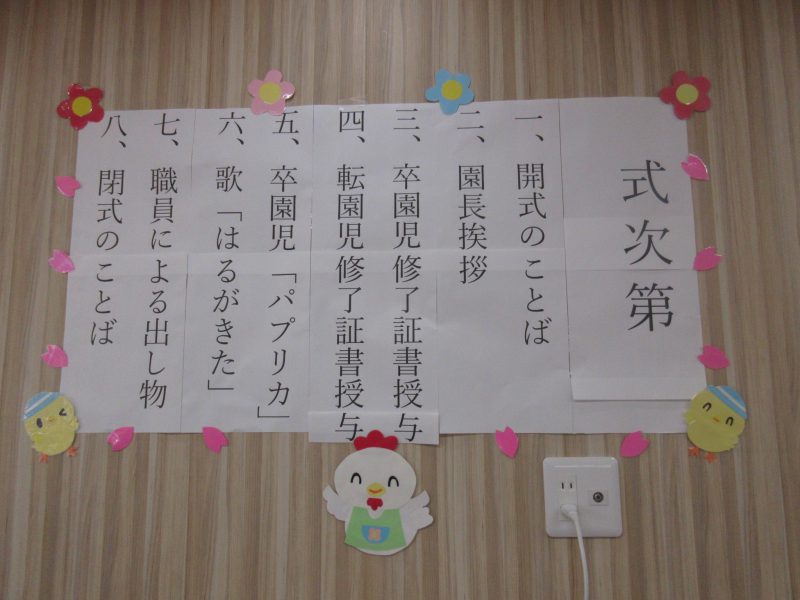 式次第
一、開式のことば
二、園長挨拶
三、卒園児修了証書授与
四、転園児修了証書授与
五、卒園児「パプリカ」
六、歌「はるがきた」
七、職員による出し物
八、閉式のことば